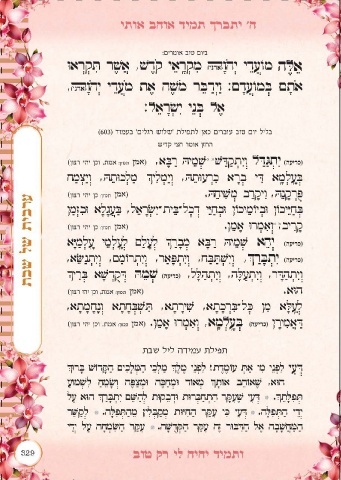 ה' יתברך תמיד אוהב אותי
ביום טוב אומרים:
אֵלֶּה מוֹעֲדֵי יְהֹוָה מִקְרָאֵי קֹדֶשׁ, אֲשֶׁר תִּקְרְאוּ
אֹתָם בְּמוֹעֲדָם: וַיְדַבֵּר מֹשֶׁה אֶת מֹעֲדֵי יְהֹוָה,
אֶל בְּנֵי יִשְׂרָאֵל:
בליל יום טוב עוברים כאן לתפילת 'שלוש רגלים' בעמוד (603)
החזן אומר חצי קדיש
(כריעה) יִתְגַּדַּל וְיִתְקַדַּשׁ שְׁמֵהּ רַבָּא, (אמן
בְּעָלְמָא דִּי בְרָא כִרְעוּתֵהּ, וְיַמְלִיךְ מַלְכוּתֵהּ, וְיַצְמַח
פֻּרְקָנֵהּ, וִיקָרֵב מְשִׁיחֵהּ. (אמן
בְּחַיֵּיכוֹן וּבְיוֹמֵיכוֹן וּבְחַיֵּי דְכָל-בֵּית-יִשְׂרָאֵל, בַּעֲגָלָא וּבִזְמַן
קָרִיב, וְאִמְרוּ אָמֵן. (אמן
(כריעה) יְהֵא שְׁמֵהּ רַבָּא מְבָרַךְ לְעָלַם לְעָלְמֵי עָלְמַיָּא
(כריעה) יִתְבָּרַךְ, וְיִשְׁתַּבַּח, וְיִתְפָּאַר, וְיִתְרוֹמַם, וְיִתְנַשֵּׂא,
וְיִתְהַדָּר, וְיִתְעַלֶּה, וְיִתְהַלָּל, (כריעה) שְׁמֵהּ דְּקֻדְשָׁא בְּרִיךְ
הוּא. (אמן
לְעֵלָּא מִן כָּל-בִּרְכָתָא, שִׁירָתָא, תֻּשְׁבְּחָתָא וְנֶחֱמָתָא,
דַּאֲמִירָן (כריעה) בְּעָלְמָא, וְאִמְרוּ אָמֵן. (אמן
תפילת עמידה ליל שבת
דְּעִי לִפְנֵי מִי אַתְּ עוֹמֶדֶת! לִפְנֵי מֶלֶךְ מַלְכֵי הַמְּלָכִים הַקָּדוֹשׁ בָּרוּךְ
הוּא, שֶׁאוֹהֵב אוֹתָךְ מְאוֹד וּמְחַכֶּה וּמְצַפֶּה וְשָׂמֵחַ לִשְׁמוֹעַ
תְּפִלָּתֵךְ. * דְּעִי שֶׁעִקַּר הַתְחַבְּרוּת וּדְבֵקוּת לְהַשֵּׁם יִתְבָּרַךְ הוּא עַל
יְדֵי הַתְּפִלָּה. * דְּעִי כִּי עִקַּר הַחַיּוּת מְקַבְּלִין מֵהַתְּפִלָּה. * לְקַשֵּׁר
הַמַּחֲשָׁבָה אֶל הַדִּבּוּר זֶה עִקַּר הַקְּדֻשָּׁה. * עִקַּר הַשִּׂמְחָה עַל יְדֵי
ערבית של שבת
329
ותמיד יהיה לי רק טוב